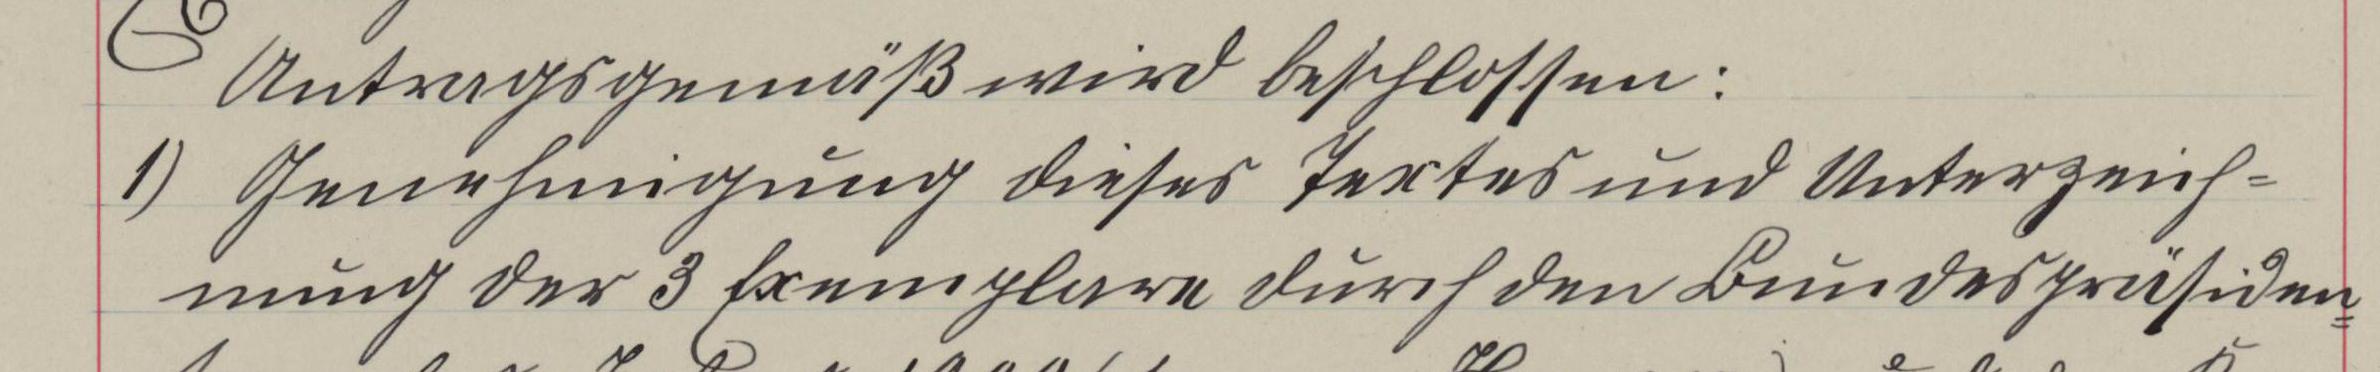 Antragsgemäß wird beschlossen:
1) Genehmigung dieses Textes und Unterzeich=
nung der 3 Exemplare durch den Bundespräsiden=